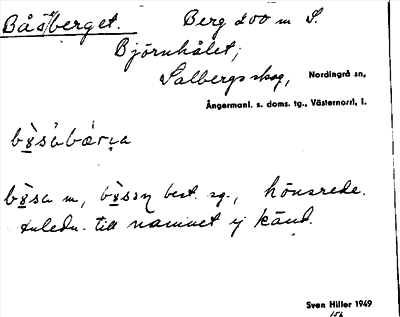 Båsberget. Berg 200 m S.
Björnhålet;
Salbergs skog, Nordingrå sn,
Ångermanl. s. doms. tg., Västernorrl. l.
best. sg., hönsrede.
Anledn. till namnet ej känd.
Sven Hiller 1949
156